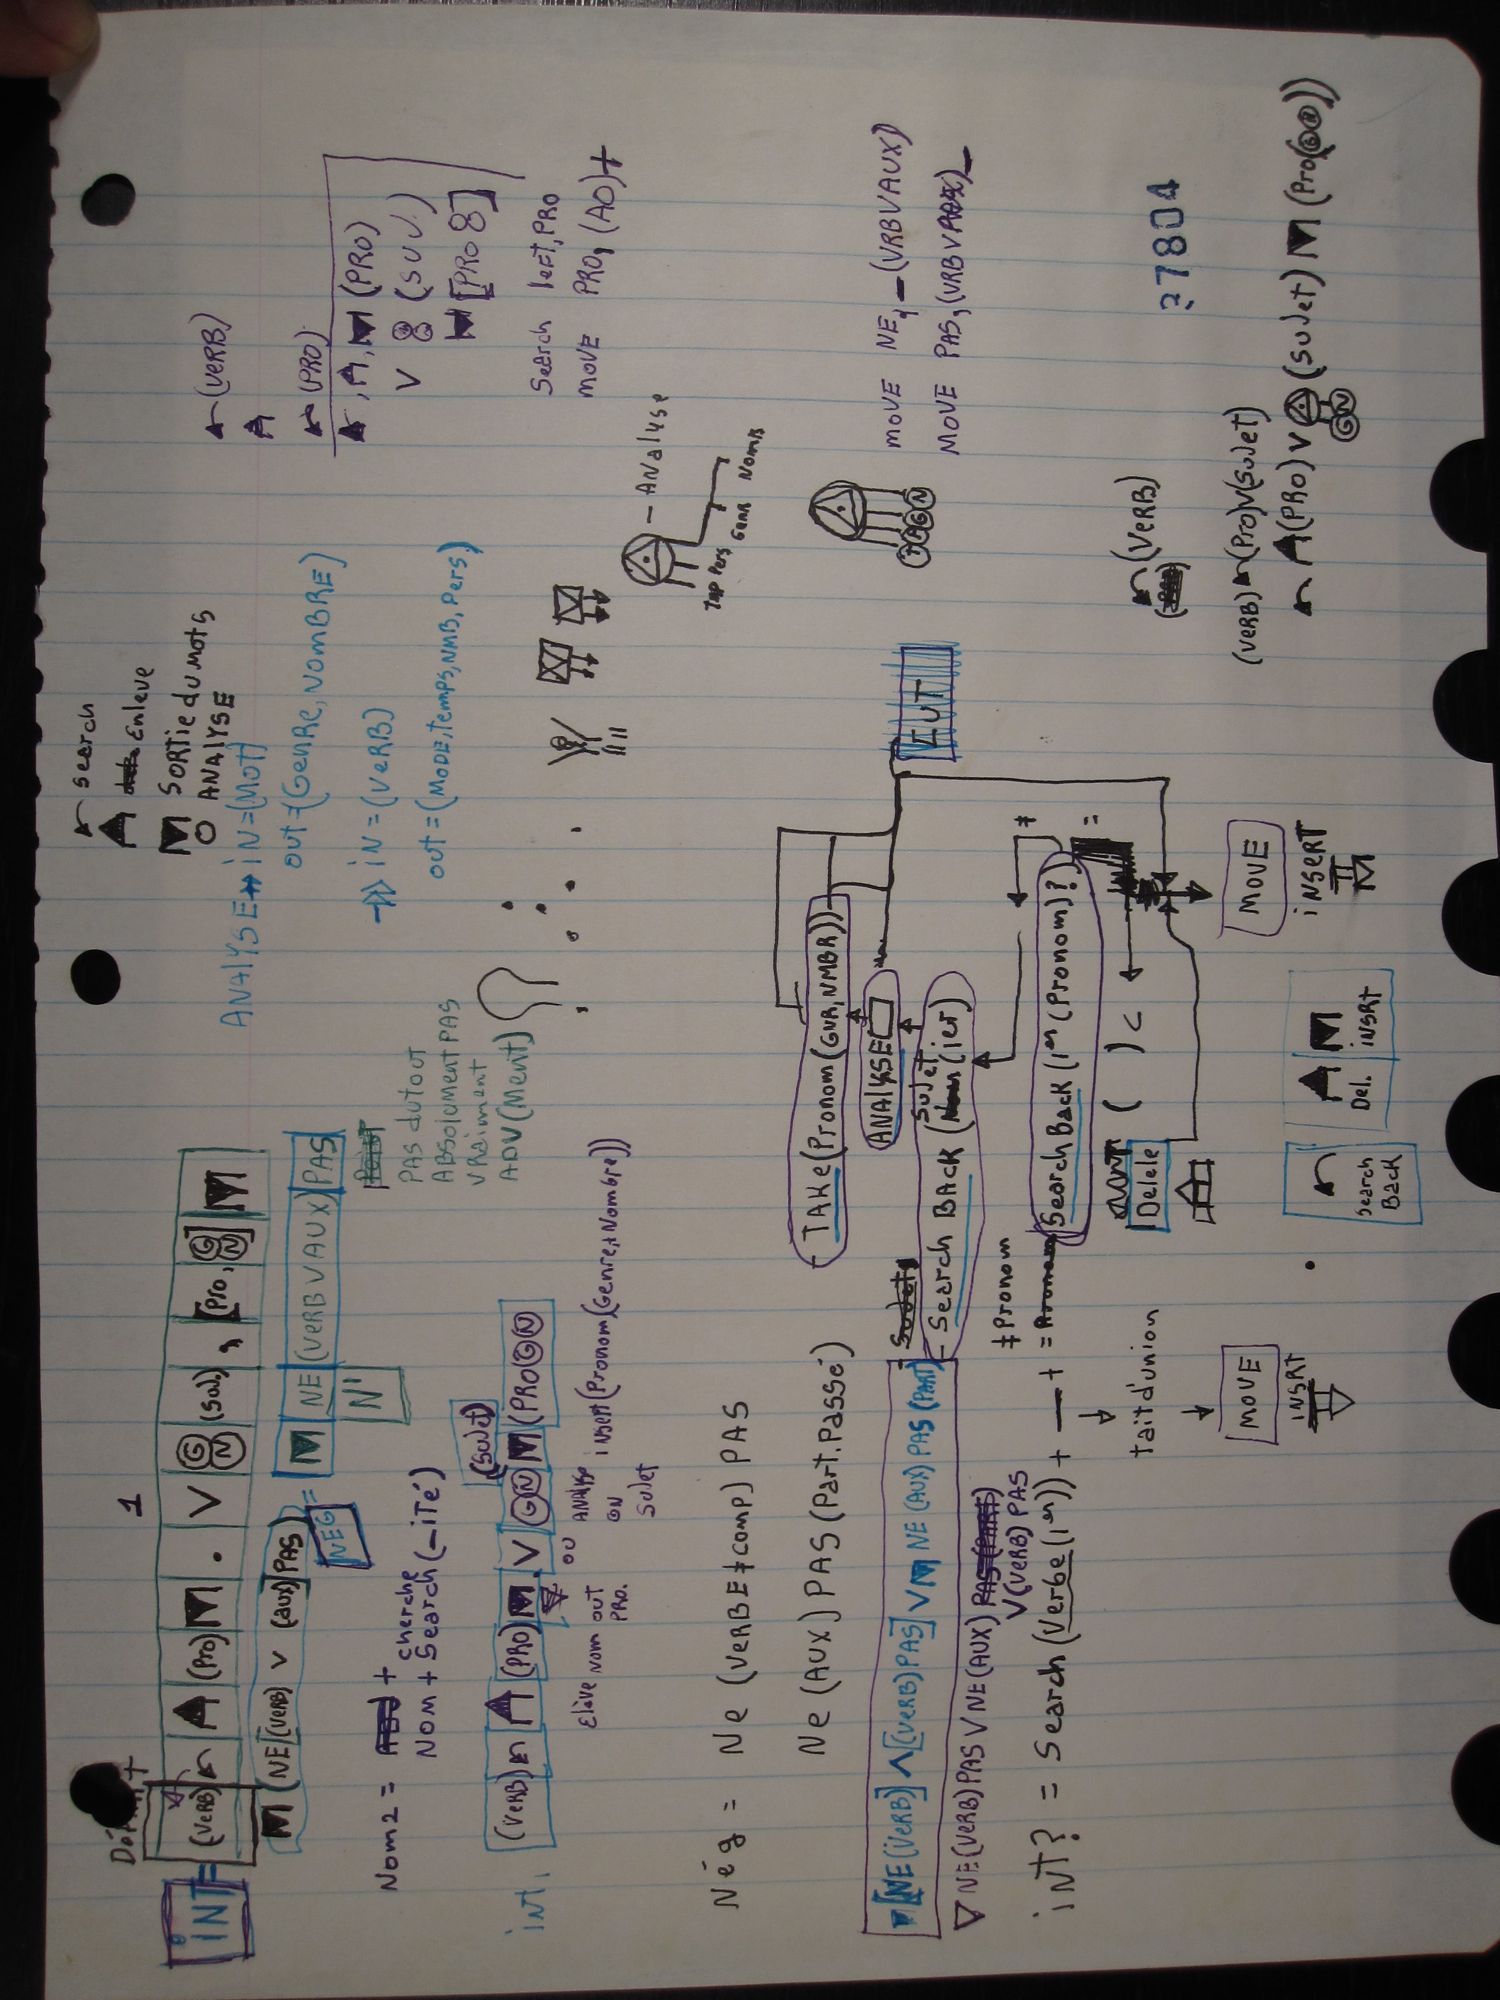 1
Départ
iNT = (VERB) (Pro) . V G N (Suj) , [Pro, G N]
(NE (VERB) V (AUX) PAS) = NE (VERB V AUX) PAS
NEG
N'
Nom2 = +
cherche
Nom + Search (-iTé)
PAS dutout
ABSOLUMENT PAS
VRaiment
ADV (Ment)
int,
(VERB) (PRO) V G N (Sujet) (PRO G N)
Elève Nom out PRO.
ou
ANAlyse ON Sujet
insert (Pronom (Genre, Nombre))
Nég = Ne (VERBE ≠ comp) PAS
Ne (AUX) PAS (Part. Passé)
[NE (VERB)] ∧ [(VERB) PAS] V NE (AUX) PAS (PART)
NE (VERB) PAS V NE (AUX)
V (VERB) PAS
iNT? = Search (Verbe (1er)) + — +
≠ Pronom
=
tait d'union
MOVE
INSRT
search
Enleve
SORTie du mots
O ANALYSE
ANALYSE iN = (MOT)
out = (GenRe, NOMBRE)
iN = (VERB)
out = (MODE, temps, NMB, Pers)
- TAKe (Pronom (GNR, NMBR))
ANALYSE
- Search BAcK (Sujet (1er)
Search Back (1er (Pronom)?
≠
=
( ) <
Delele
MOVE
iNSERT
Search Back
Del.
iNSRT
OUT
(VERB)
(PRO)
(PRO)
V (SUJ.)
[PRO 8]
Search left, PRO
MOVE PRO, (AO) +
- ANalyse
Tmp Pers GENR NOMB
MOVE NE, - (VRB V AUX)
MOVE PAS, (VRB V AUX) -
(VERB)
27804
(VERB) (Pro) V (Sujet)
(PRO) V G N (Sujet) (Pro (G N))